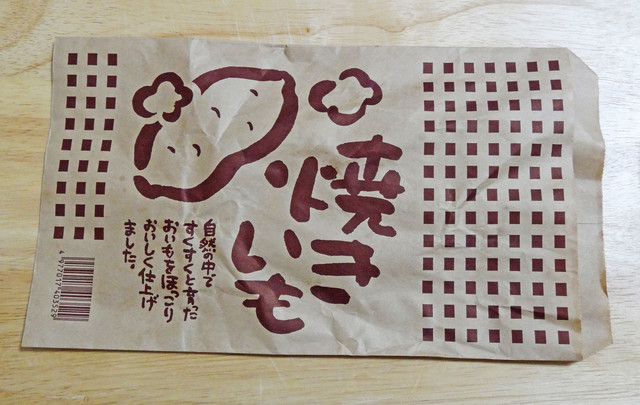 焼き
いも
自然の中で
すくすくと育った
おいもをほっこり
おいしく仕上げ
ました。
4970174035296